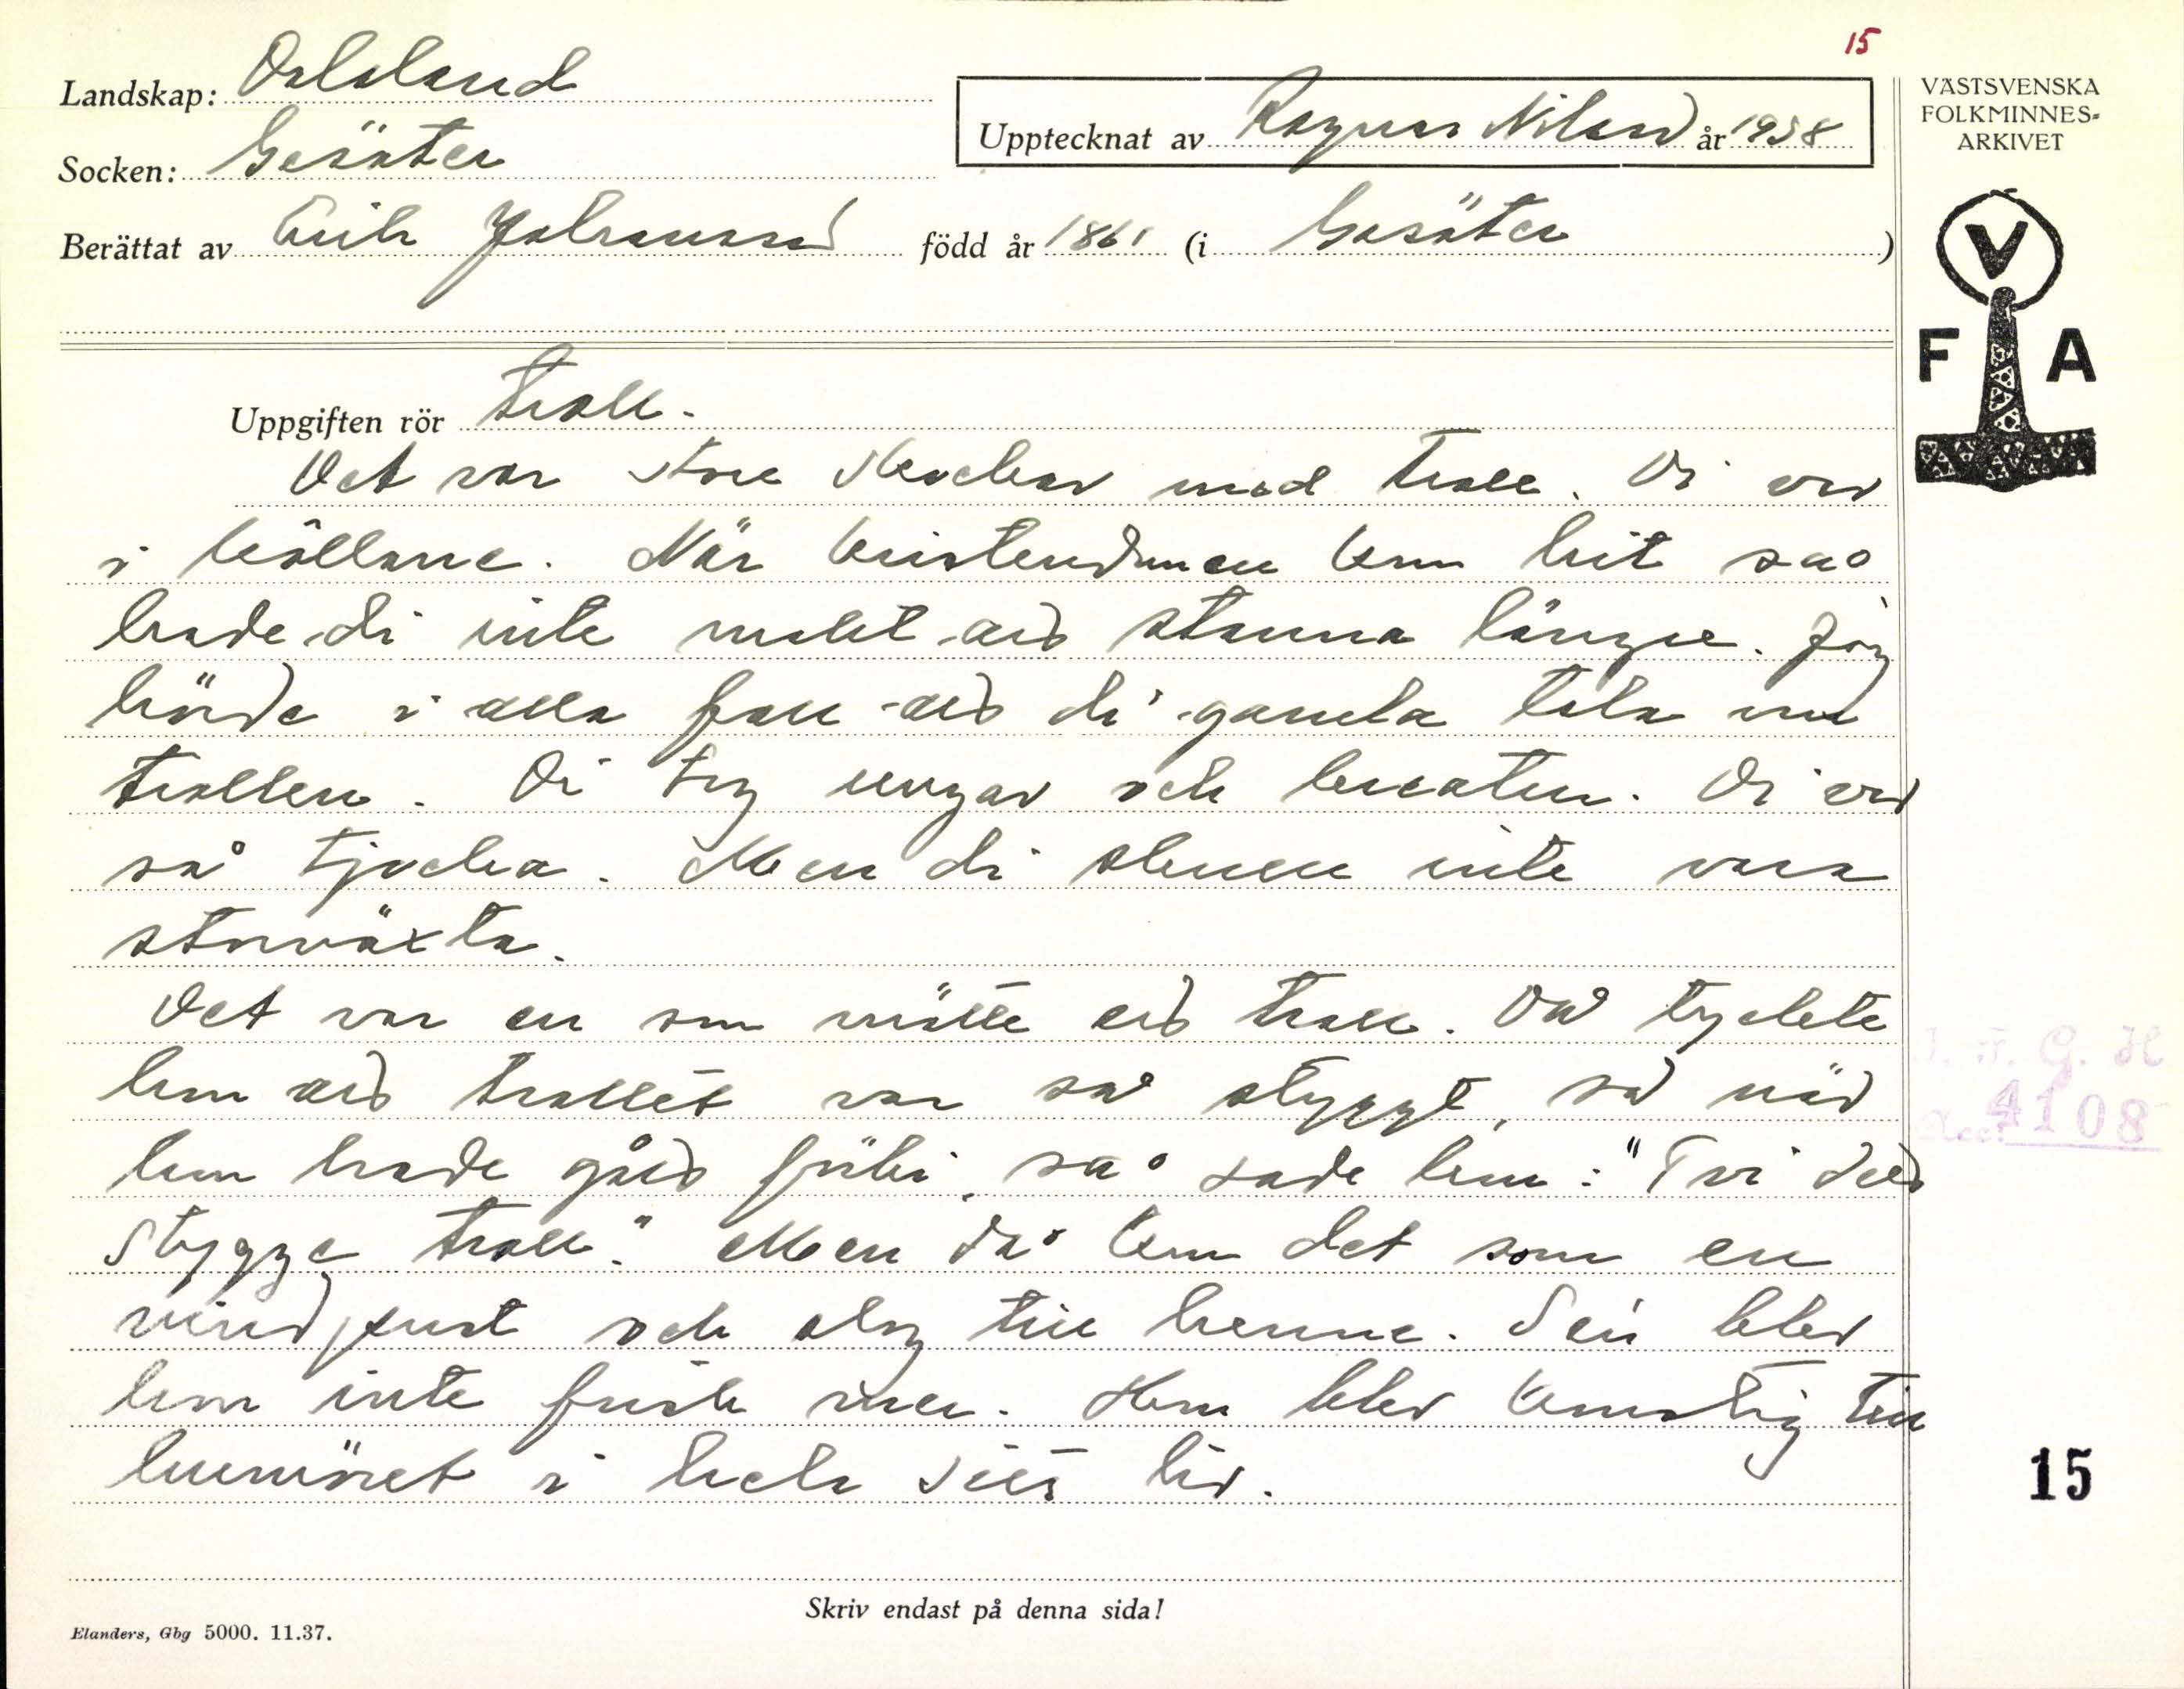 15
Landskap: Dalsland
Socken: Gesäter
Upptecknat av Ragnar Nilsson år 1938
VÄSTSVENSKA
FOLKMINNES-
ARKIVET
Berättat av Erik Johansson född år 1861 (i Gesäter)
V
F A
Uppgiften rör Troll.
Det var stora flockar med troll. Di var
i hällarne. När kristendomen kom hit så
hade di inte makt att stanna längre. Jag
hörde i alla fall att di gamla tala om
trollen. Di tog ungar och bytte. Di var
så tjocka. Men di skulle inte vara
storväxta.
Det var en som mötte ett troll. Då tyckte
hon att trollet var så styggt, så när
hon hade gått förbi, så sade hon: "Tvi det
stygge troll." Men då kom det som en
vindpust och slog till henne. Sen blev
hon inte frisk mer. Hon blev konstig till
humöret i hela sitt liv.
I. F. G. H
Acc. 4108
15
Skriv endast på denna sida!
Elanders, Gbg 5000. 11.37.